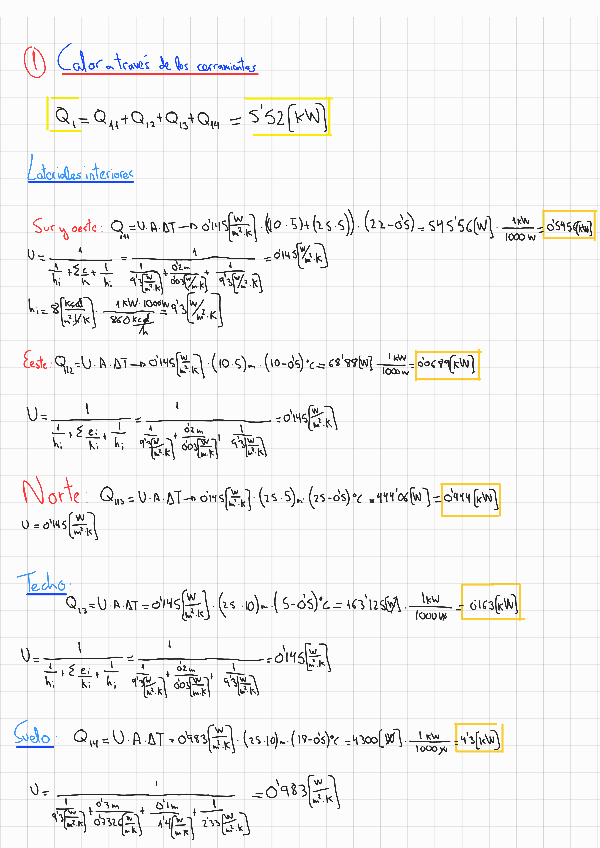 ① Calor a través de los cerramientos
Q₁ = Q₁₁ + Q₁₂ + Q₁₃ + Q₁₄ = 5'52 [kW]
Laterales interiores
Sur y oeste: Q₁₁ = U·A·ΔT → 0'145 [W/m²·K] · ((10·5)+(25·5)) · (22-0'5) = 545'56 [W] · 1kW/1000W = 0'5456 [kW]
U = 1 / (1/hᵢ + Σ e/k + 1/hᵢ) = 1 / (1/9'3[W/m²·K] + 0'2m/0'03[W/m·K] + 1/9'3[W/m²·K]) = 0'145 [W/m²·K]
hᵢ = 8 [kcal/m²·h·K] · 1kW·1000W / 860 kcal/h = 9'3 [W/m²·K]
Eeste: Q₁₂ = U·A·ΔT → 0'145 [W/m²·K] · (10·5)m · (10-0'5)°C = 68'88 [W] · 1kW/1000W = 0'0689 [kW]
U = 1 / (1/hᵢ + Σ eᵢ/kᵢ + 1/hᵢ) = 1 / (1/9'3[W/m²·K] + 0'2m/0'03[W/m·K] + 1/9'3[W/m²·K]) = 0'145 [W/m²·K]
Norte: Q₁₁₃ = U·A·ΔT → 0'145 [W/m²·K] · (25·5)m · (25-0'5)°C = 444'06 [W] = 0'444 [kW]
U = 0'145 [W/m²·K]
Techo:
Q₁₃ = U·A·ΔT = 0'145 [W/m²·K] · (25·10)m · (5-0'5)°C = 163'125 [W] · 1kW/1000W = 0'163 [kW]
U = 1 / (1/hᵢ + Σ eᵢ/kᵢ + 1/hᵢ) = 1 / (1/9'3[W/m²·K] + 0'2m/0'03[W/m·K] + 1/9'3[W/m²·K]) = 0'145 [W/m²·K]
Suelo: Q₁₄ = U·A·ΔT = 0'983 [W/m²·K] · (25·10)m · (18-0'5)°C = 4300 [W] · 1kW/1000W = 4'3 [kW]
U = 1 / (1/9'3[W/m²·K] + 0'3m/0'7326[W/m·K] + 0'1m/1'4[W/m·K] + 1/2'33[W/m²·K]) = 0'983 [W/m²·K]